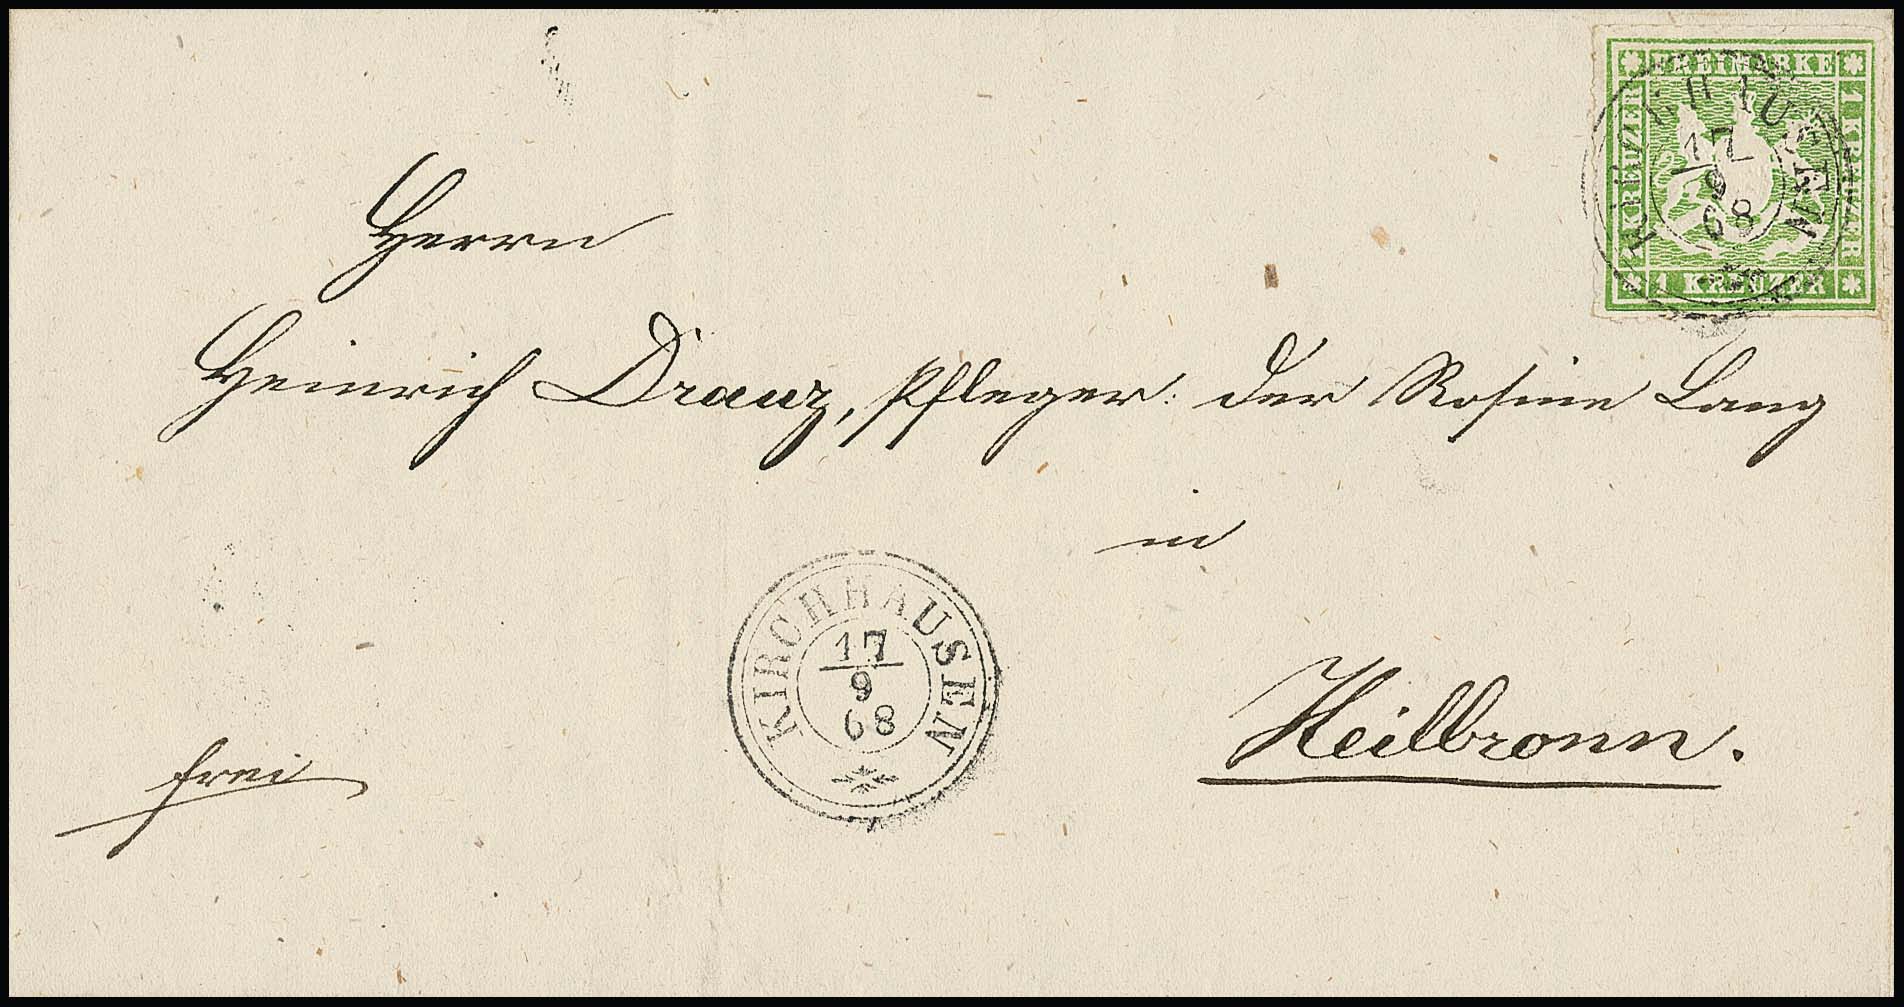 FREIMARKE
1 KREUZER
1 KREUZER
1 KREUZER
KIRCHHAUSEN
17
9
68
Herrn
Heinrich Drauz, Pfleger: der Rosine Lang
in
Heilbronn.
KIRCHHAUSEN
17
9
68
frei